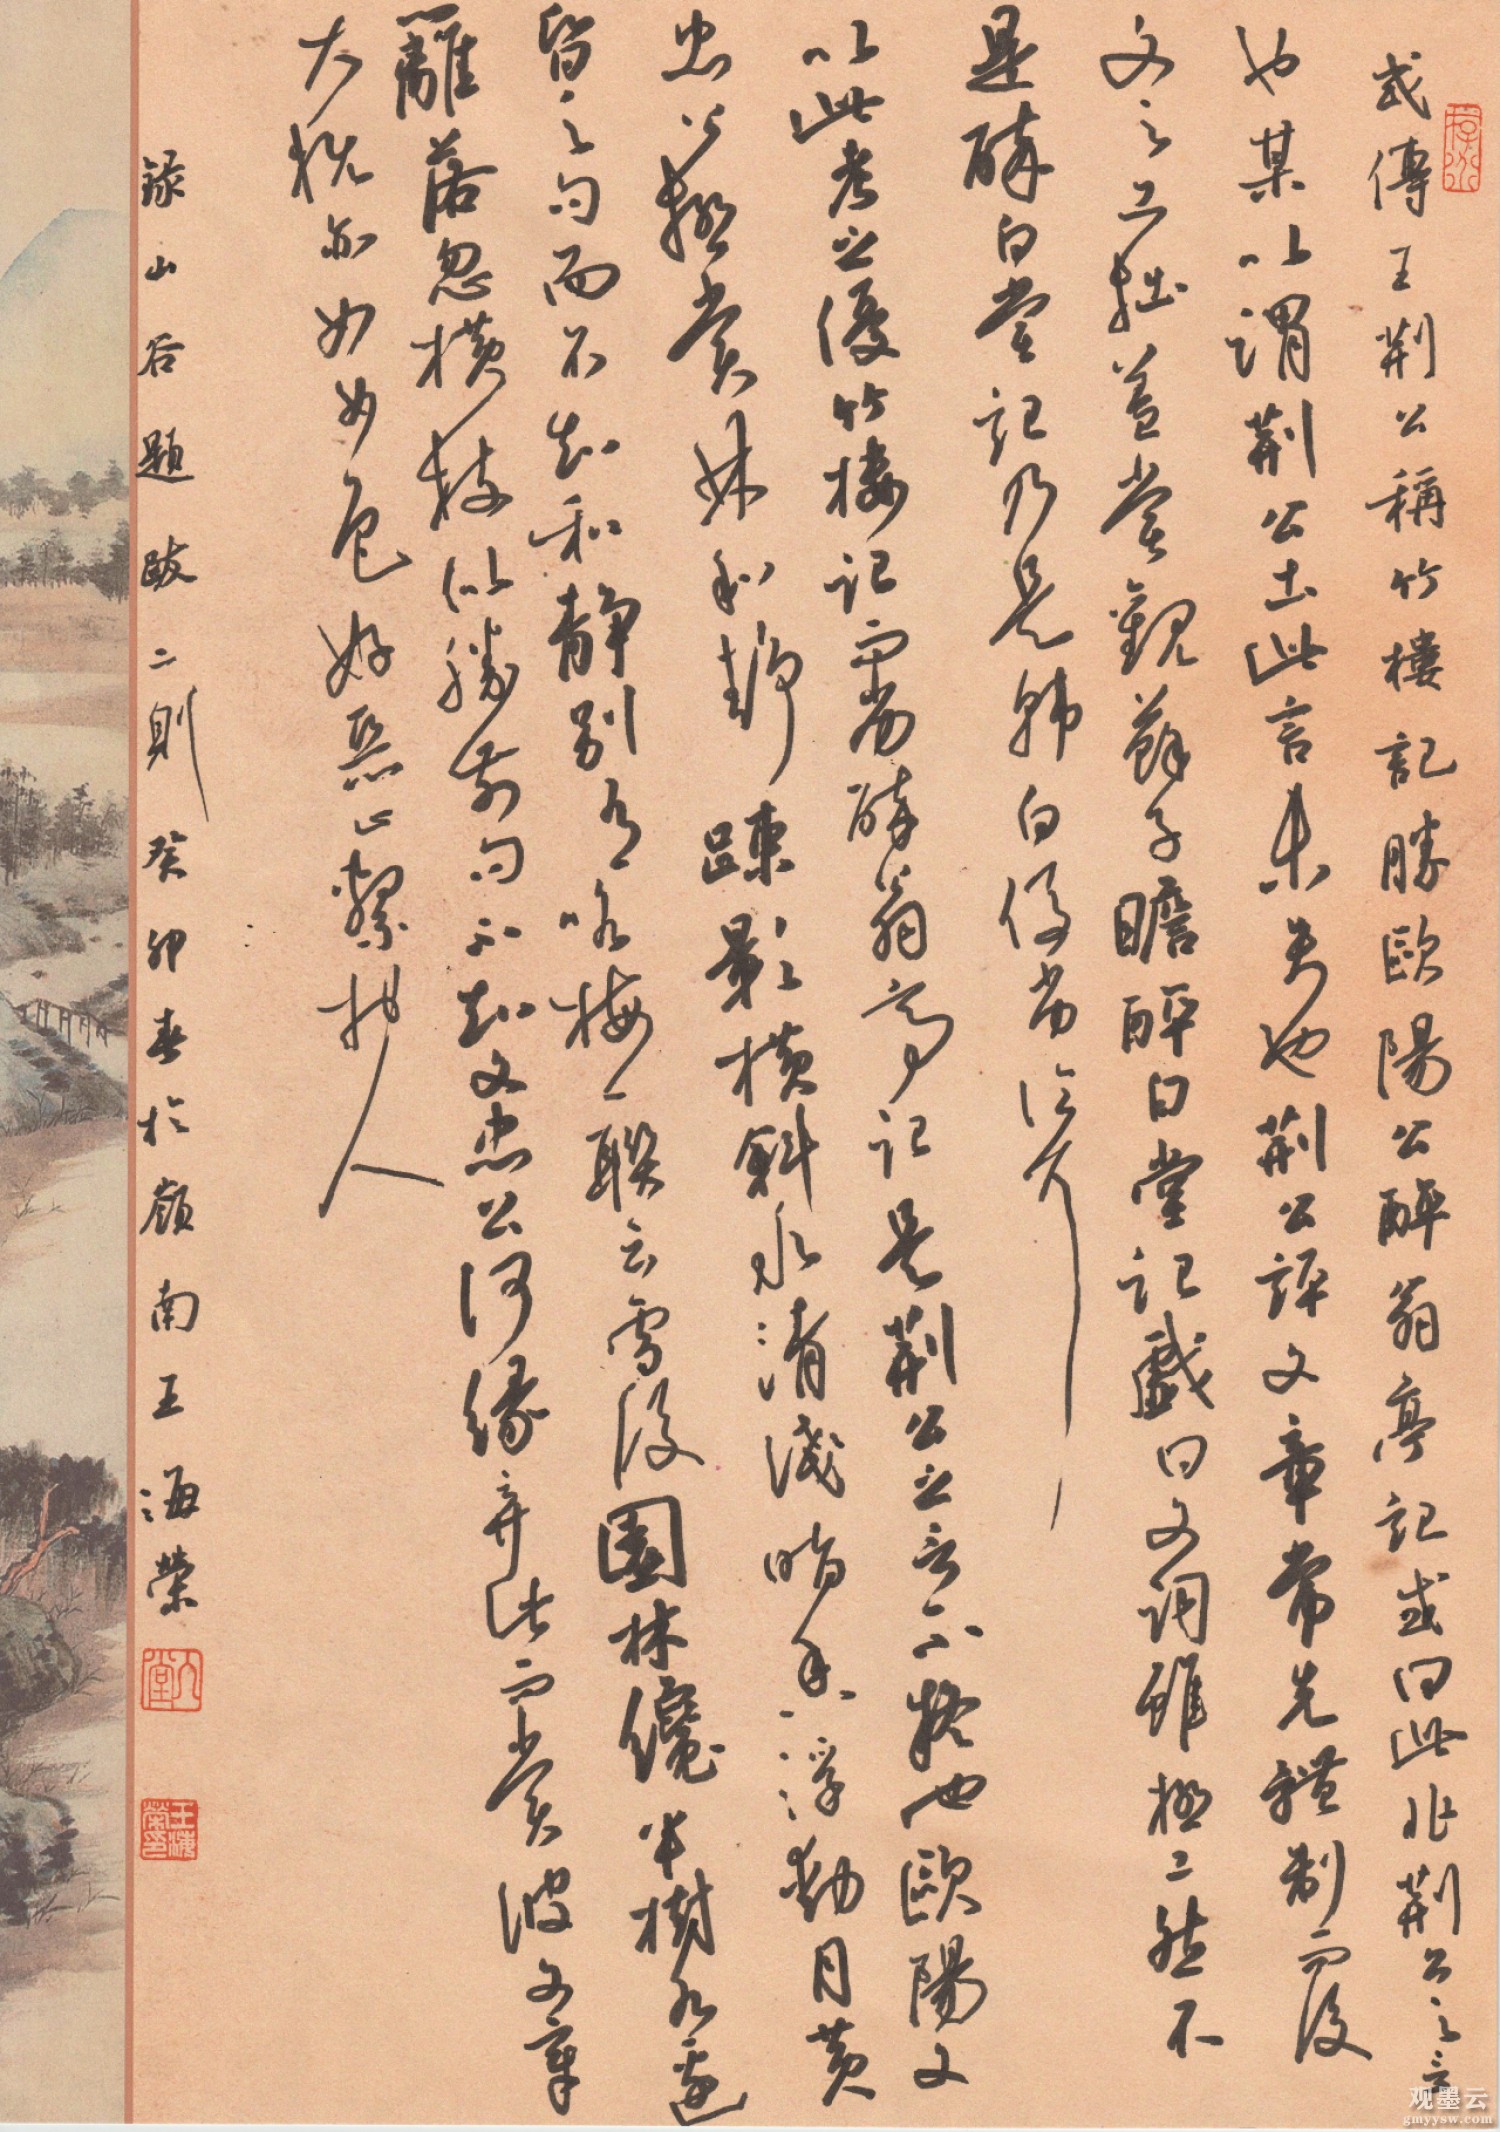 或傳王荆公稱竹樓記勝歐陽公醉翁亭記或曰此非荆公之言
也某以謂荆公出此言未失也荆公評文章常先體制而後
文之工拙蓋嘗觀蘇子瞻醉白堂記戲曰文詞雖極工然不
是醉白堂記乃是韩白優劣論尔
以此考之優竹樓記而劣醉翁亭記是荆公之言不疑也歐陽文
忠公極賞林和靖疎影横斜水清淺暗香浮動月黄
昏之句而不知和靜别有咏梅一聯云雪後園林纔半樹水邊
籬落忽横枝似勝前句不知文忠公何緣弃此而賞彼文章
大概亦如女色好惡止繫於人
録山谷題跋二則 癸卯春於嶺南王海榮
王海榮印
观墨云
gmyysw.com